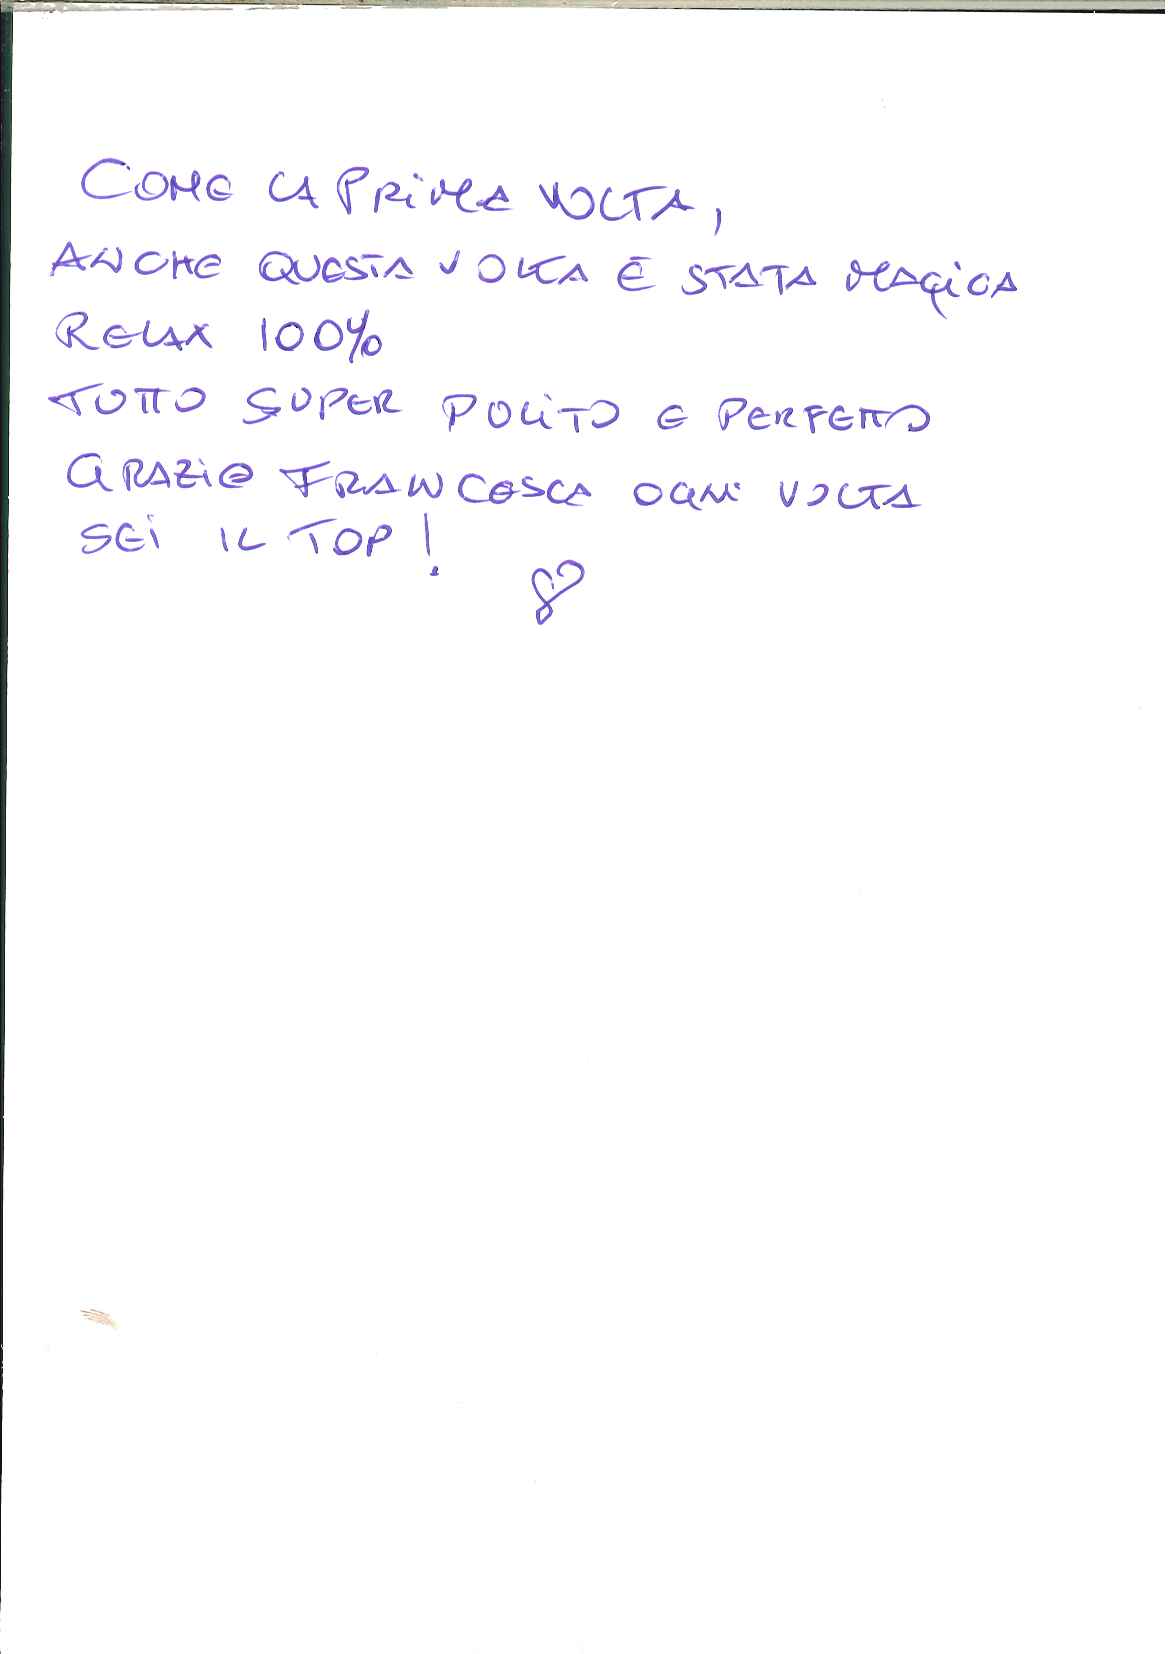 COME LA PRIMA VOLTA,
ANCHE QUESTA VOLTA È STATA MAGICA
RELAX 100%
TUTTO SUPER PULITO E PERFETTO
GRAZIE FRANCESCA OGNI VOLTA
SEI IL TOP!